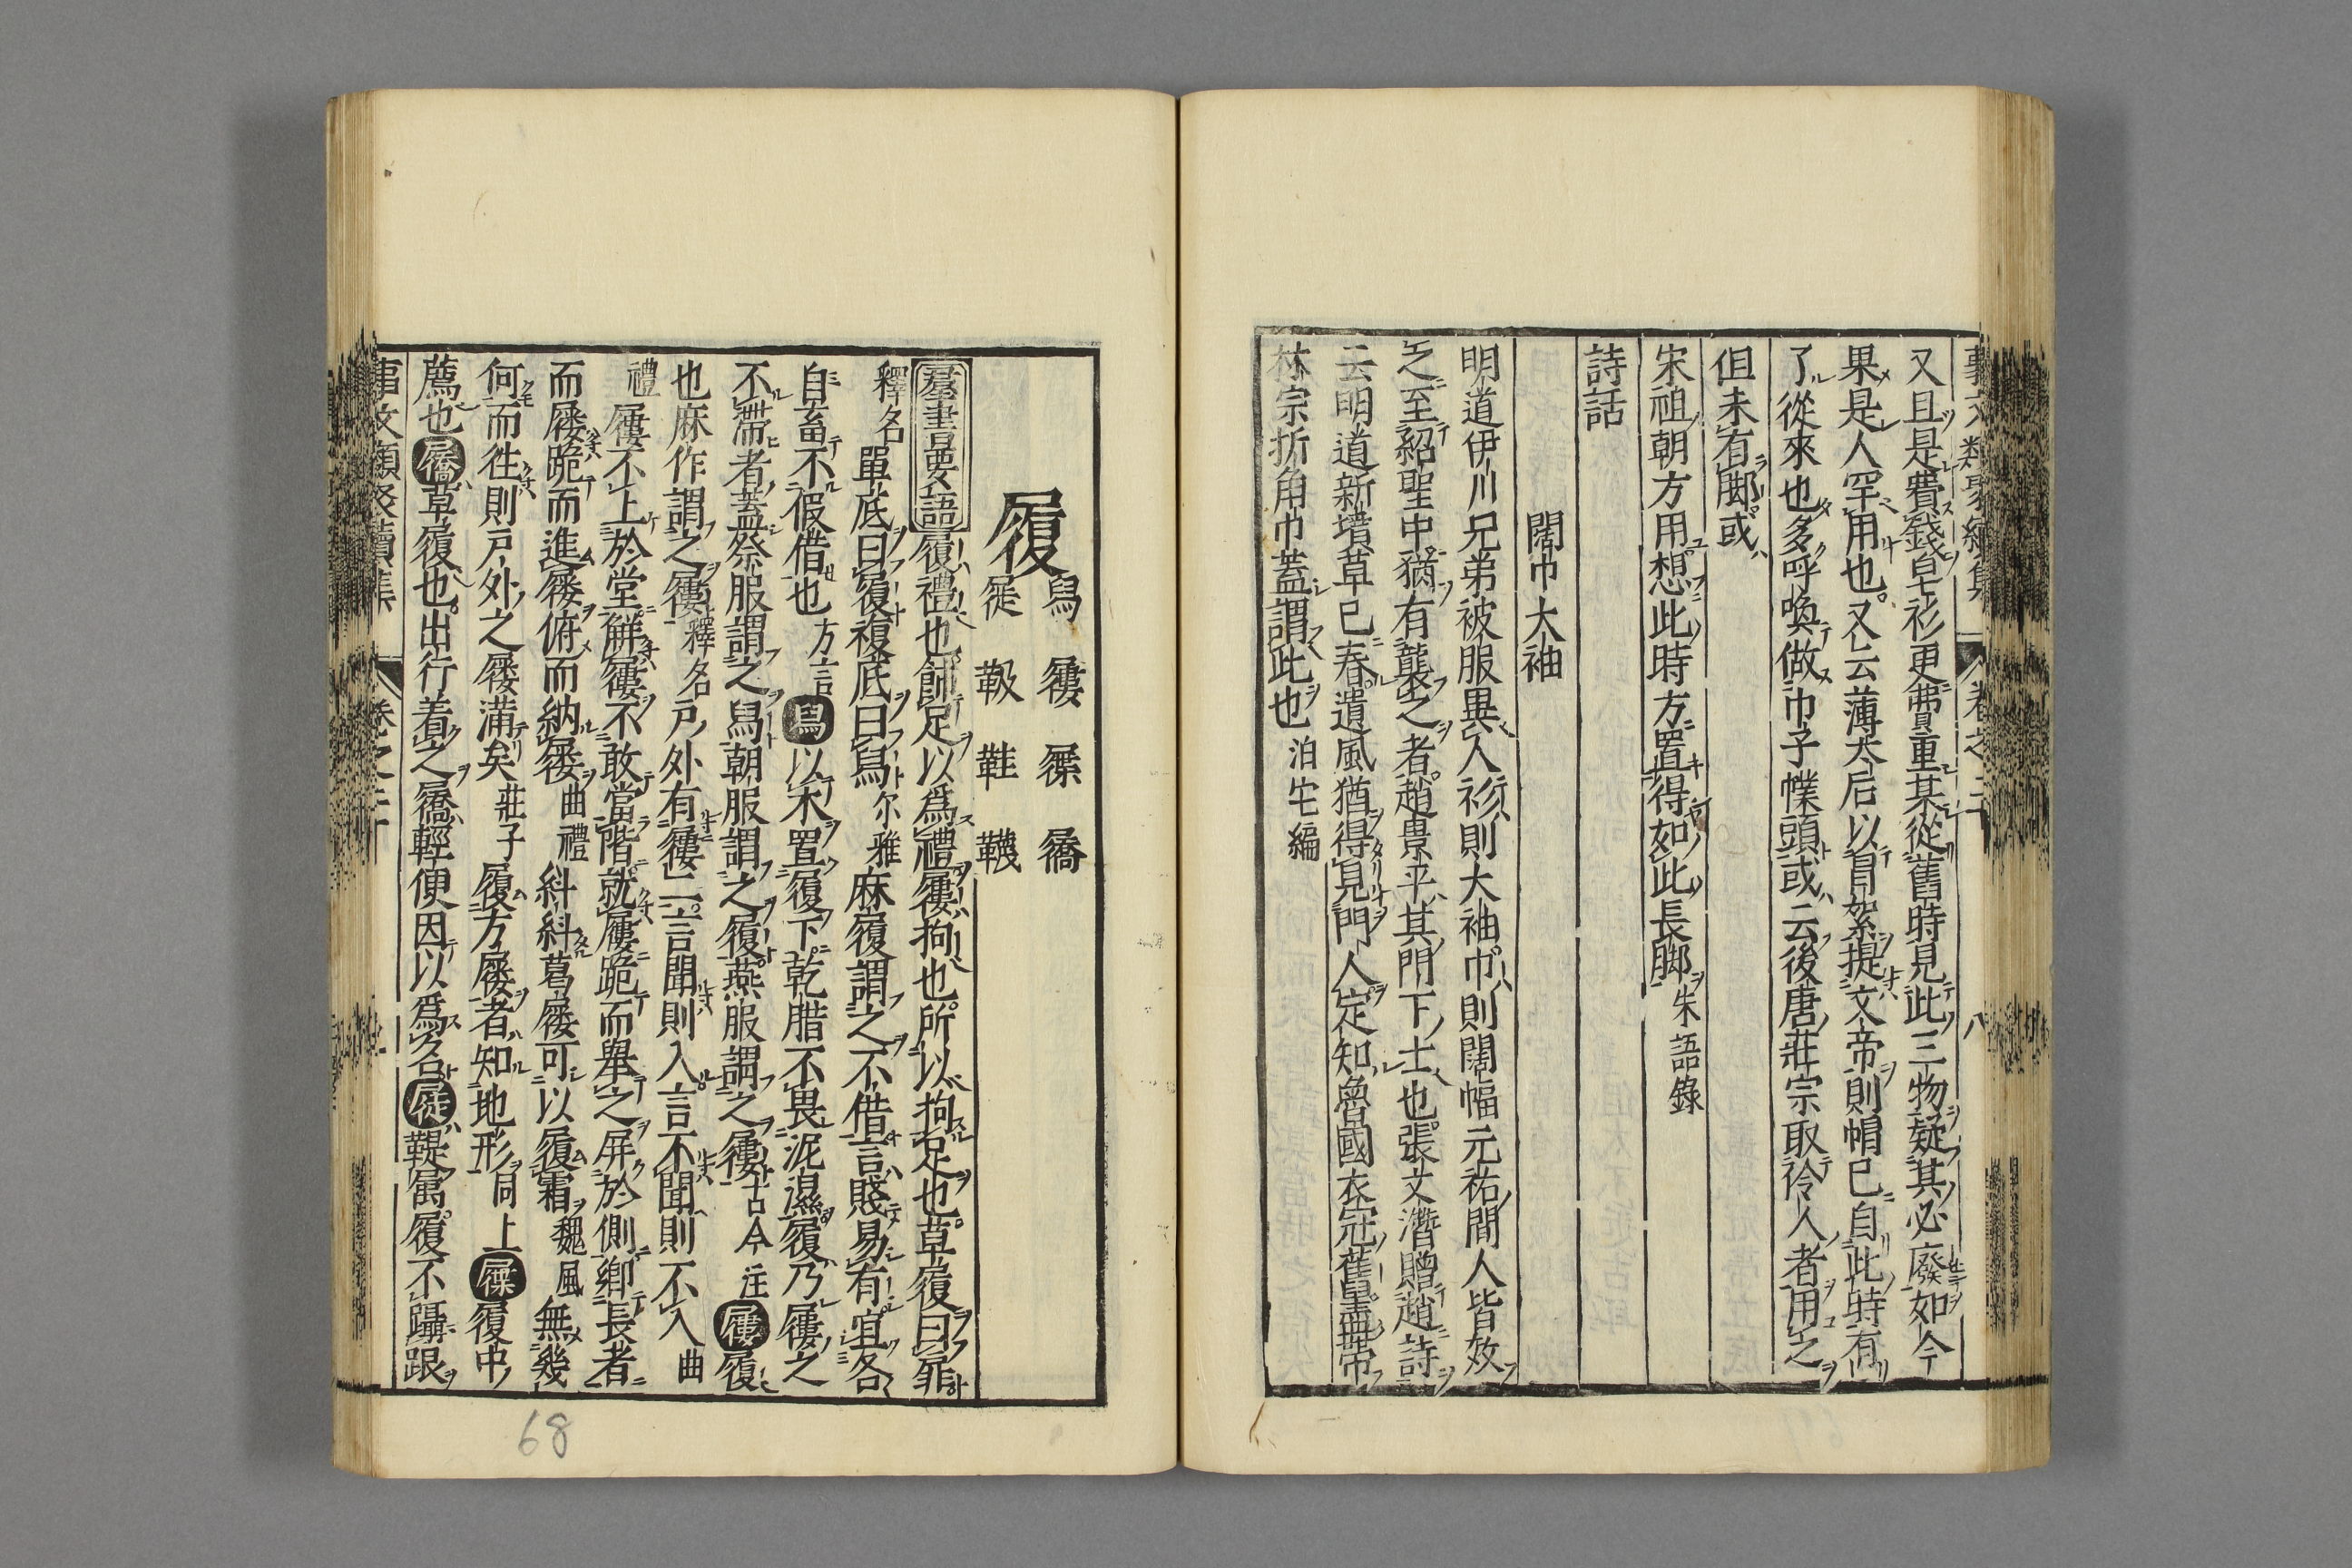 事文類聚續集 卷之二十 八
又且是費錢皂衫更費重某從舊時見此三物疑其必廢如今
果是人罕用也又云薄太后以冒絮提文帝則帽已自此時有
了從來也多呼喚做巾子幞頭或云後唐莊宗取伶人者用之
但未有脚或
宋祖朝方用想此時方置得如此長脚 朱語錄
詩話
闊巾大袖
明道伊川兄弟被服異人衫則大袖巾則闊幅元祐間人皆效
之至紹聖中猶有襲之者趙景平其門下士也張文潛贈趙詩
云明道新墳草已春遺風猶得見門人定知魯國衣冠舊盡帶
林宗折角巾蓋謂此也 泊宅編
履 舄 屨 屧 屩
屣 靸 鞋 韈
羣書要語 履禮也飾足以爲禮屨拘也所以拘足也草履曰屝
釋名 單底曰履複底曰舄 尔雅 麻履謂之不借言賤易有宜各
自畜不假借也 方言 舄以木置履下乾腊不畏泥濕履乃屨之
不滯者蓋祭服謂之舄朝服謂之履燕服謂之屨 古今注 屨履
也麻作謂之屨 釋名 戶外有屨二言聞則入言不聞則不入 曲
禮 屨不上於堂解屨不敢當階就屨跪而舉之屏於側鄉長者
而屨跪而進屨俯而納屨 曲禮 糾糾葛屨可以履霜 魏風 無幾
何而徃則戶外之屨滿矣 莊子 履方屨者知地形 同上 屧履中
薦也屩草履也出行着之屩輕便因以爲名屣鞮屬履不躡跟
事文類聚續集 卷之二十
68